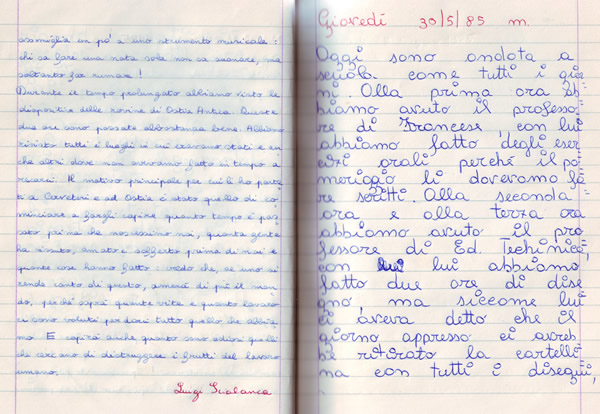 assomiglia un po' a uno strumento musicale:
chi sa fare una nota sola non sa suonare, ma
soltanto far rumore!
Durante il tempo prolungato abbiamo visto le
diapositive delle rovine di Ostia Antica. Queste
due ore sono passate abbastanza bene. Abbiamo
rivisto tutti i luoghi in cui eravamo stati e an
che altri dove non avevamo fatto in tempo a
recarci. Il motivo principale per cui li ho porta
ti a Cerveteri e ad Ostia è stato quello di co
minciare a fargli capire quanto tempo è pas
sato prima che nascessimo noi, quanta gente
ha vissuto, amato e sofferto prima di noi e
quante cose hanno fatto: credo che, se uno si
rende conto di questo, amerà di più il mon
do, perché saprà quante vite e quanto lavoro
ci sono voluti per darci tutto quello che abbia
mo. E capirà anche quanto sono odiosi quelli
che cercano di distruggere i frutti del lavoro
umano.
Luigi Scialanca
Giovedí 30/5/85 m.
Oggi sono andata a
scuola come tutti i gior
ni. Alla prima ora ab
biamo avuto il professo
re di Francese, con lui
abbiamo fatto degli eser
cizi orali perché il po
meriggio li dovevamo fa
re scritti. Alla seconda
ora e alla terza ora
abbiamo avuto il pro
fessore di Ed. Techinica,
con lui abbiamo
fatto due ore di dise
gno, ma siccome lui
ci aveva detto che il
giorno appresso ci avreb
be ritirato la cartelli
na con tutti i disegni,